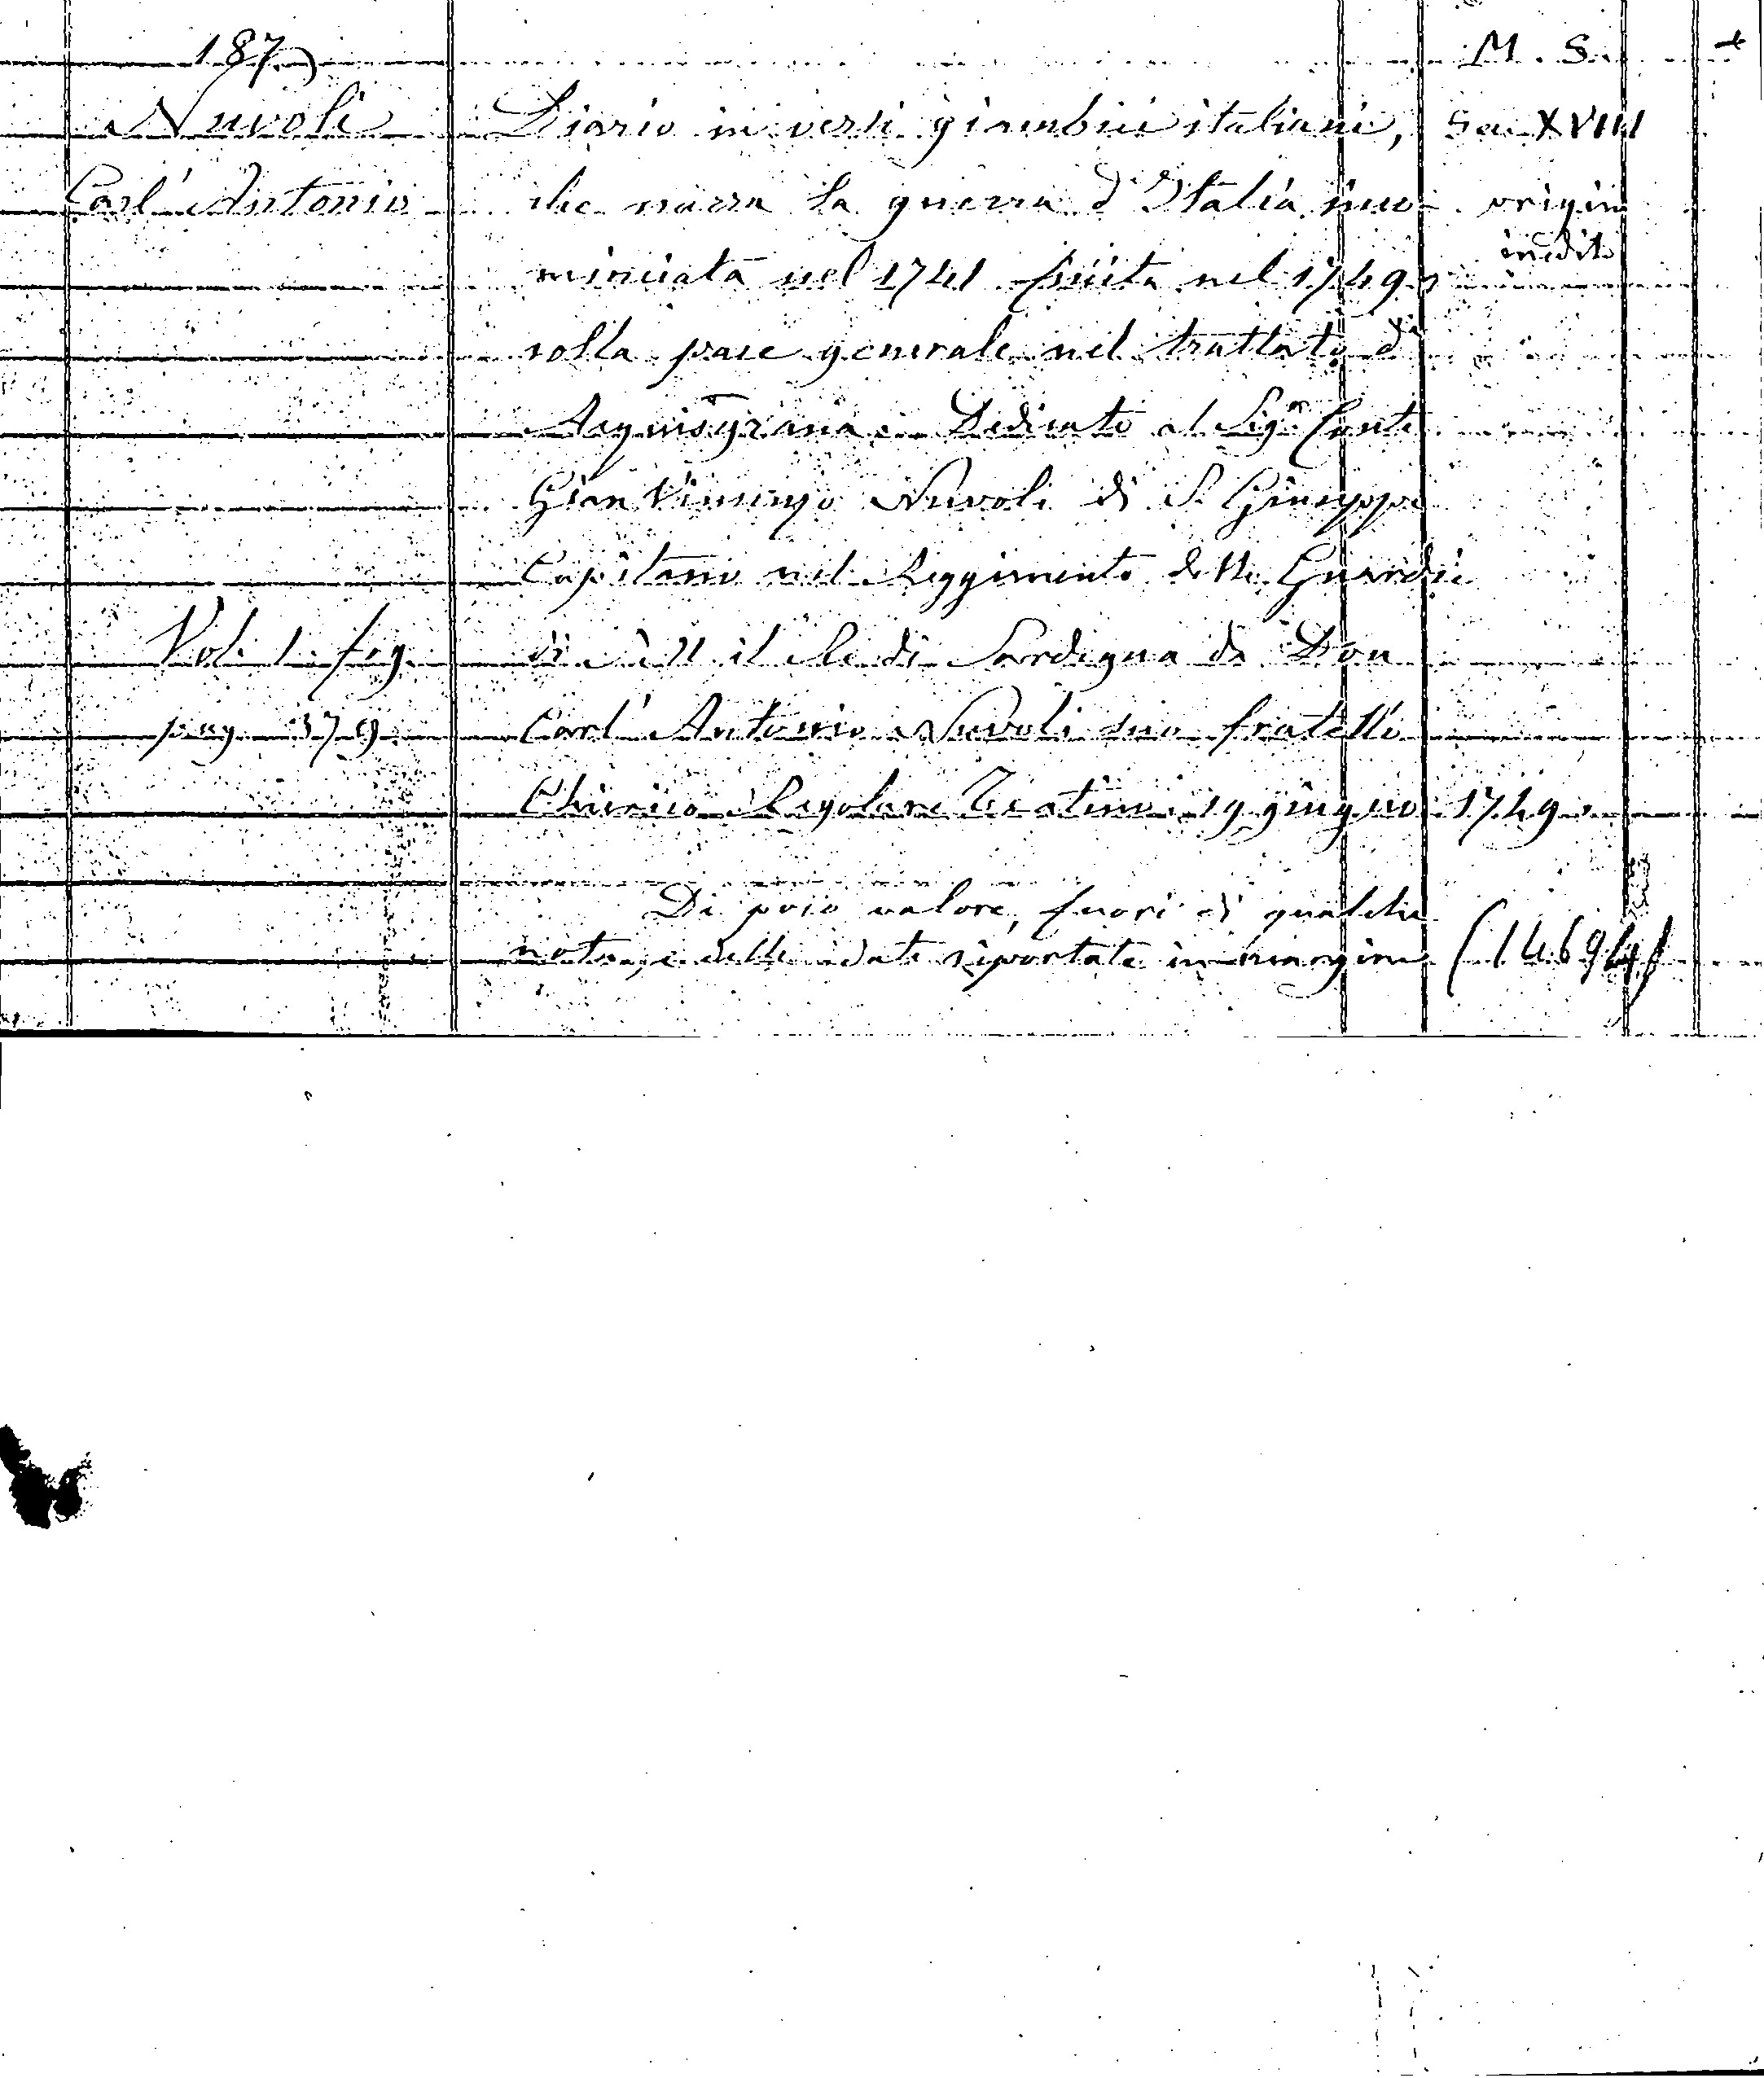 187)
M. S.
Nuvoli
Diario in versi giambici italiani,
Sec. XVIII
Carl' Antonio
che narra la guerra d'Italia inco-
origin
inedito
minciata nel 1741 finita nel 1749
colla pace generale nel trattato d'
Acquisgrana. Dedicato al Sigr Conte
Gian Vincenzo Nuvoli di S. Giuseppe
Capitano nel Reggimento delle Guardie
Vol. 1. fig.
di S. M. il Re di Sardegna da Don
pag. 379.
Carl' Antonio Nuvoli suo fratello
Chierico Regolare Teatino. 19 giugno 1749.
Di poco valore, fuori di qualche
nota, e delle date riportate in margine (14694)